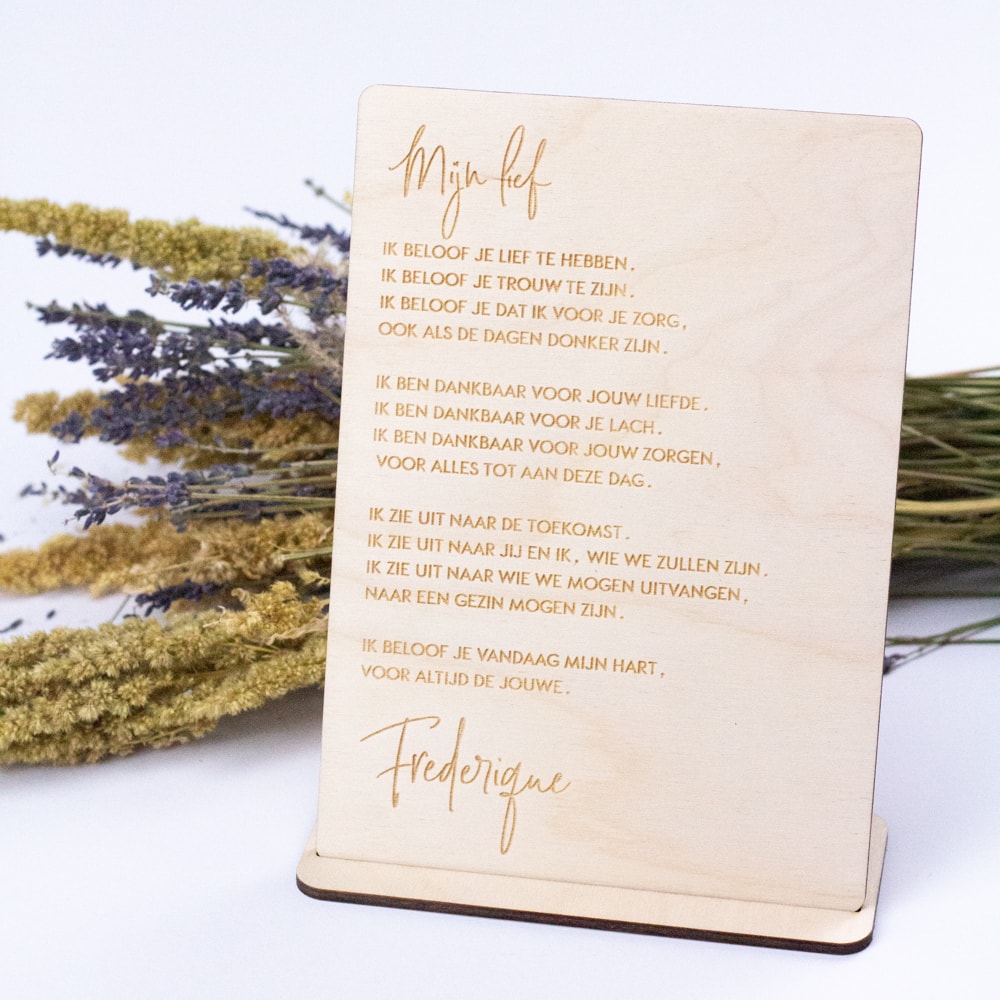 Mijn lief
IK BELOOF JE LIEF TE HEBBEN.
IK BELOOF JE TROUW TE ZIJN.
IK BELOOF JE DAT IK VOOR JE ZORG,
OOK ALS DE DAGEN DONKER ZIJN.
IK BEN DANKBAAR VOOR JOUW LIEFDE.
IK BEN DANKBAAR VOOR JE LACH.
IK BEN DANKBAAR VOOR JOUW ZORGEN,
VOOR ALLES TOT AAN DEZE DAG.
IK ZIE UIT NAAR DE TOEKOMST.
IK ZIE UIT NAAR JIJ EN IK, WIE WE ZULLEN ZIJN.
IK ZIE UIT NAAR WIE WE MOGEN UITVANGEN,
NAAR EEN GEZIN MOGEN ZIJN.
IK BELOOF JE VANDAAG MIJN HART,
VOOR ALTIJD DE JOUWE.
Frederique